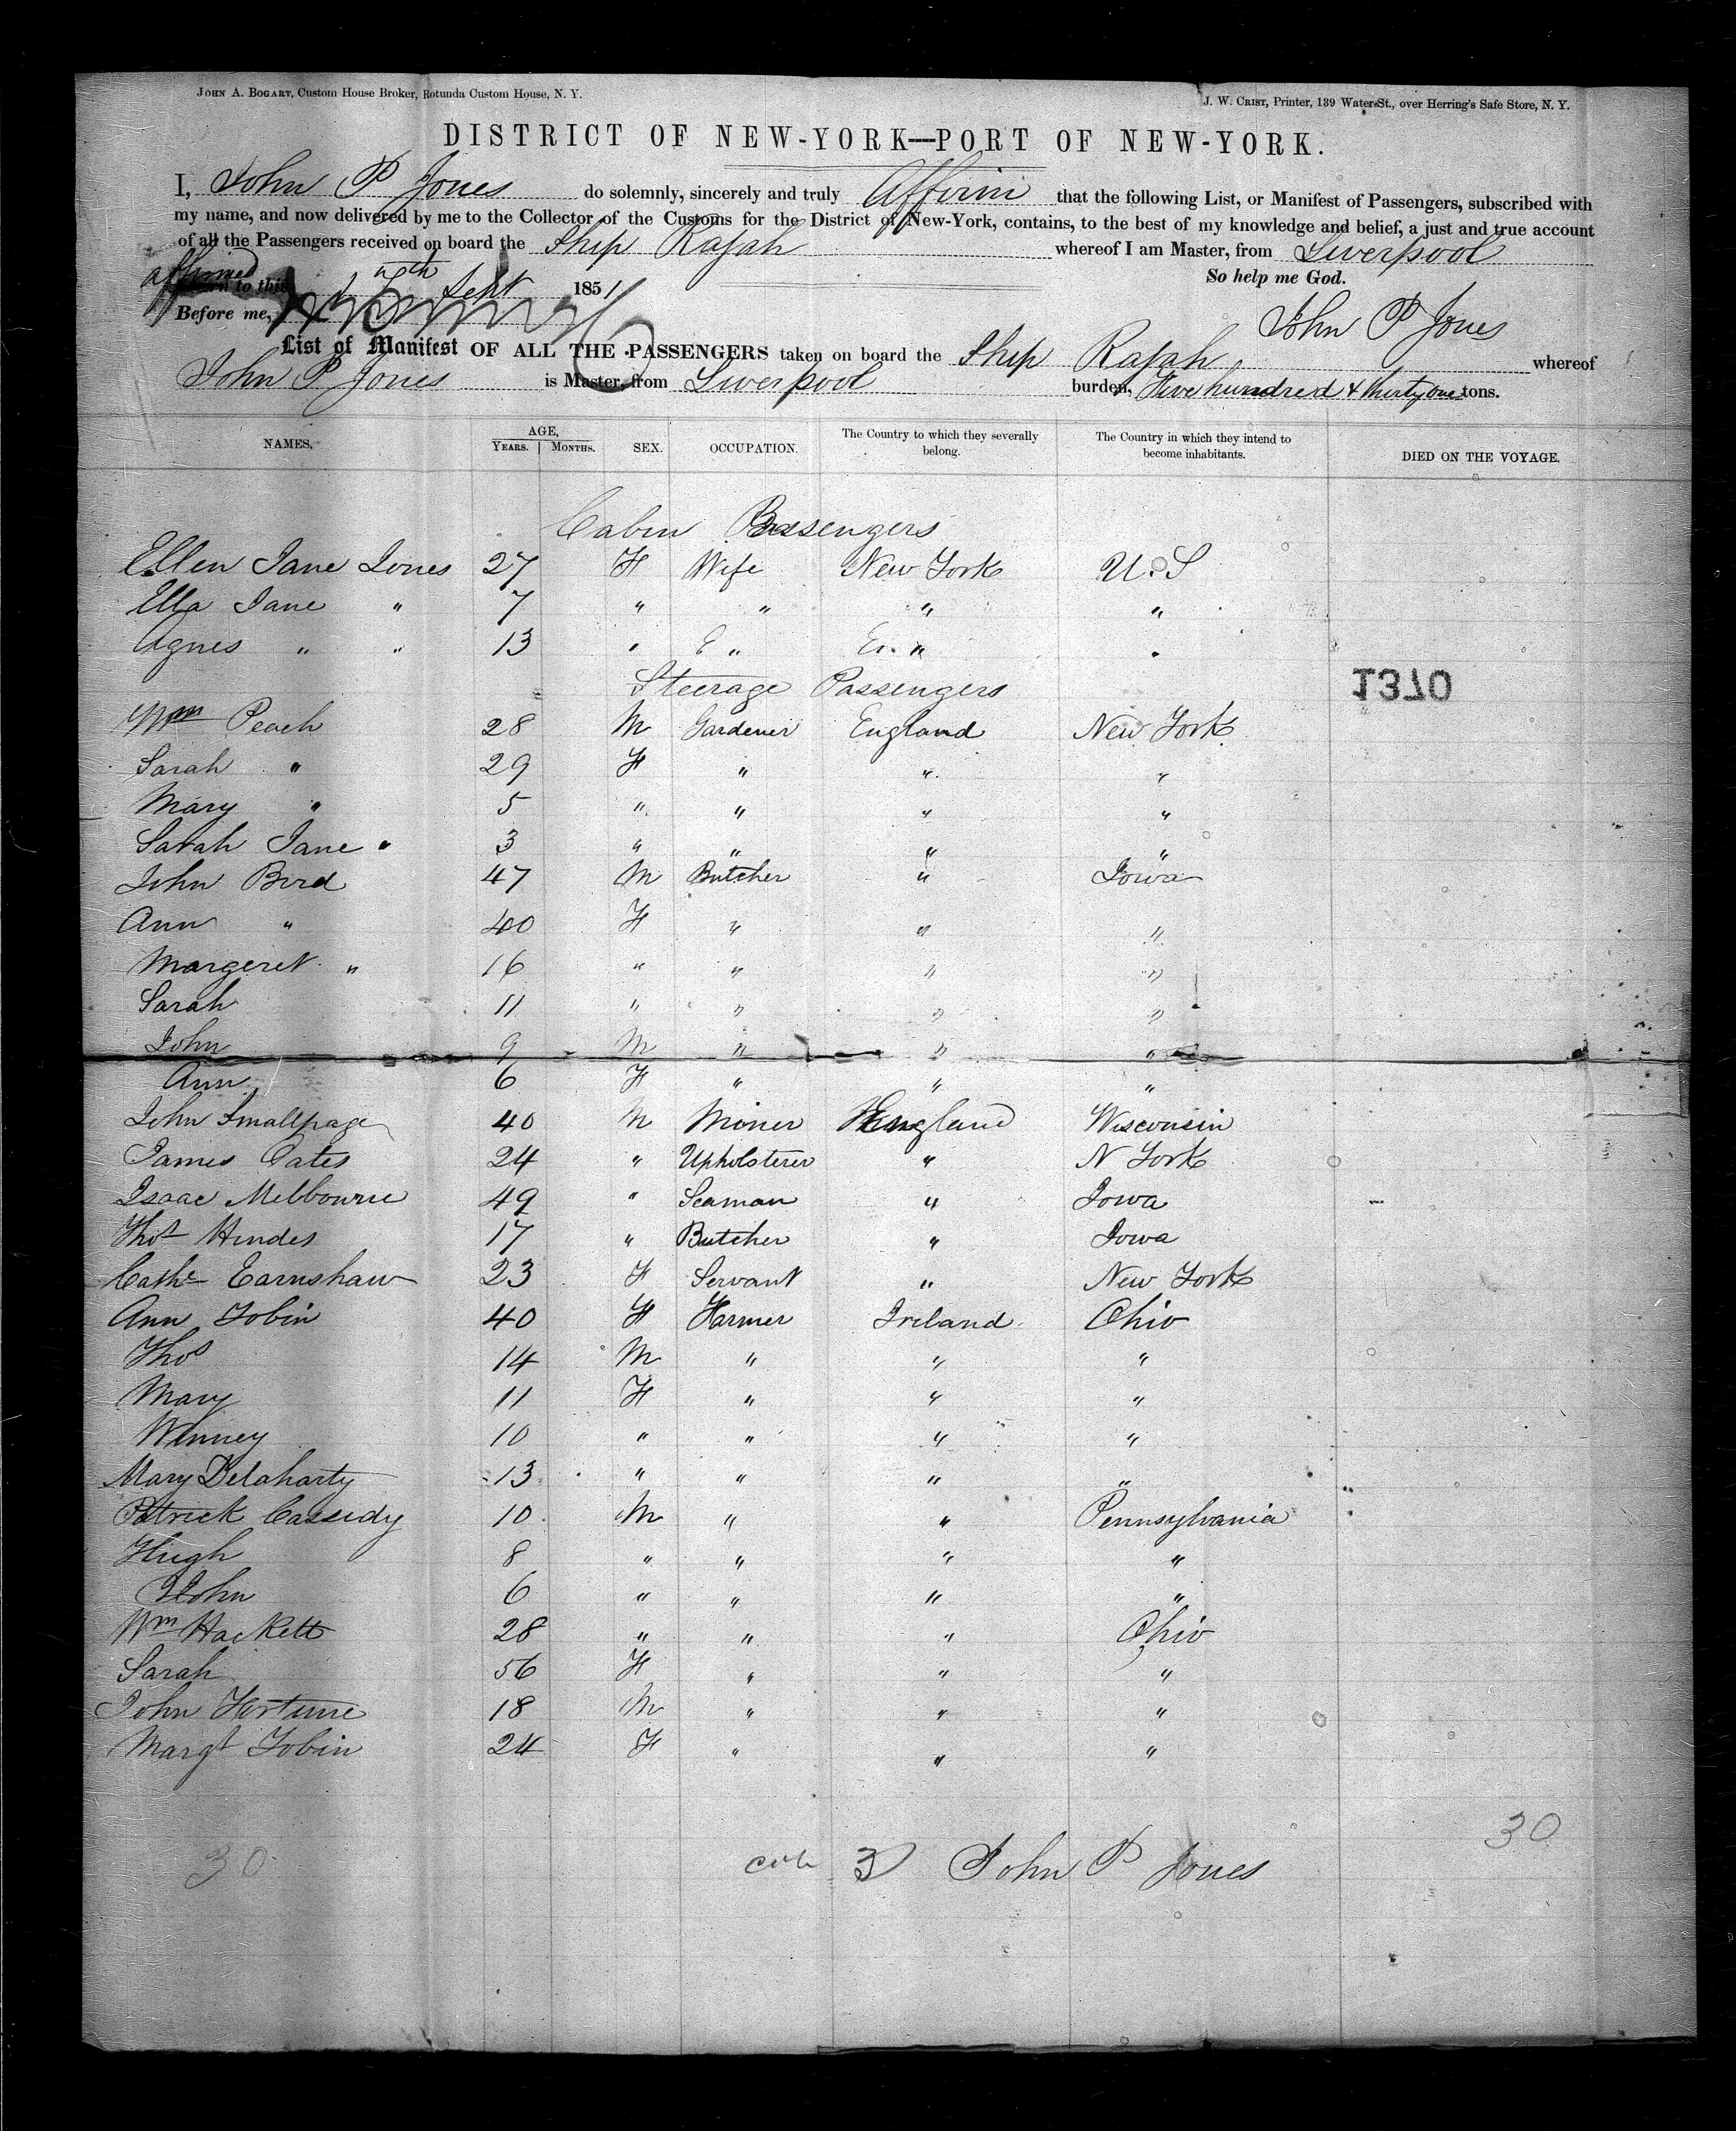 JOHN A. BOGART, Custom House Broker, Rotunda Custom House, N. Y.
J. W. CRIST, Printer, 139 Water-St., over Herring's Safe Store, N. Y.
DISTRICT OF NEW-YORK—PORT OF NEW-YORK.
I, John P Jones do solemnly, sincerely and truly Affirm that the following List, or Manifest of Passengers, subscribed with
my name, and now delivered by me to the Collector of the Customs for the District of New-York, contains, to the best of my knowledge and belief, a just and true account
of all the Passengers received on board the Ship Rajah whereof I am Master, from Liverpool
affirmed to this Sept 1851 So help me God.
Before me,
John P Jones
List of Manifest OF ALL THE PASSENGERS taken on board the Ship Rajah whereof
John P Jones is Master, from Liverpool burden, Five hundred & thirty one tons.
NAMES. AGE, YEARS. MONTHS. SEX. OCCUPATION. The Country to which they severally belong. The Country in which they intend to become inhabitants. DIED ON THE VOYAGE.
Cabin Passengers
Ellen Jane Jones 27 F Wife New York U.S
Ella Jane " 7 " " " "
Agnes " " 13 " " "
Steerage Passengers
1370
Wm Peach 28 M Gardener England New York
Sarah " 29 F " " "
Mary " 5 " " " "
Sarah Jane " 3 " " " "
John Bird 47 M Butcher " Iowa
Ann " 40 F " " "
Margeret " 16 " " " "
Sarah 11 " " " "
John 9 M " " "
Ann 6 F " " "
John Smallpage 40 M Miner England Wisconsin
James Oates 24 " Upholsterer " N York
Isaac Melbourne 49 " Seaman " Iowa
Thos Hindes 17 " Butcher " Iowa
Cathe Earnshaw 23 F Servant " New York
Ann Tobin 40 F Farmer Ireland Ohio
Thos 14 M " " "
Mary 11 F " " "
Winney 10 " " " "
Mary Delaharty 13 " " " "
Patrick Cassidy 10 M " " Pennsylvania
Hugh 8 " " " "
John 6 " " " "
Wm Hackett 28 " " " Ohio
Sarah 56 F " " "
John Fortune 18 M " " "
Margt Tobin 24 F " " "
30 3 John P Jones 30